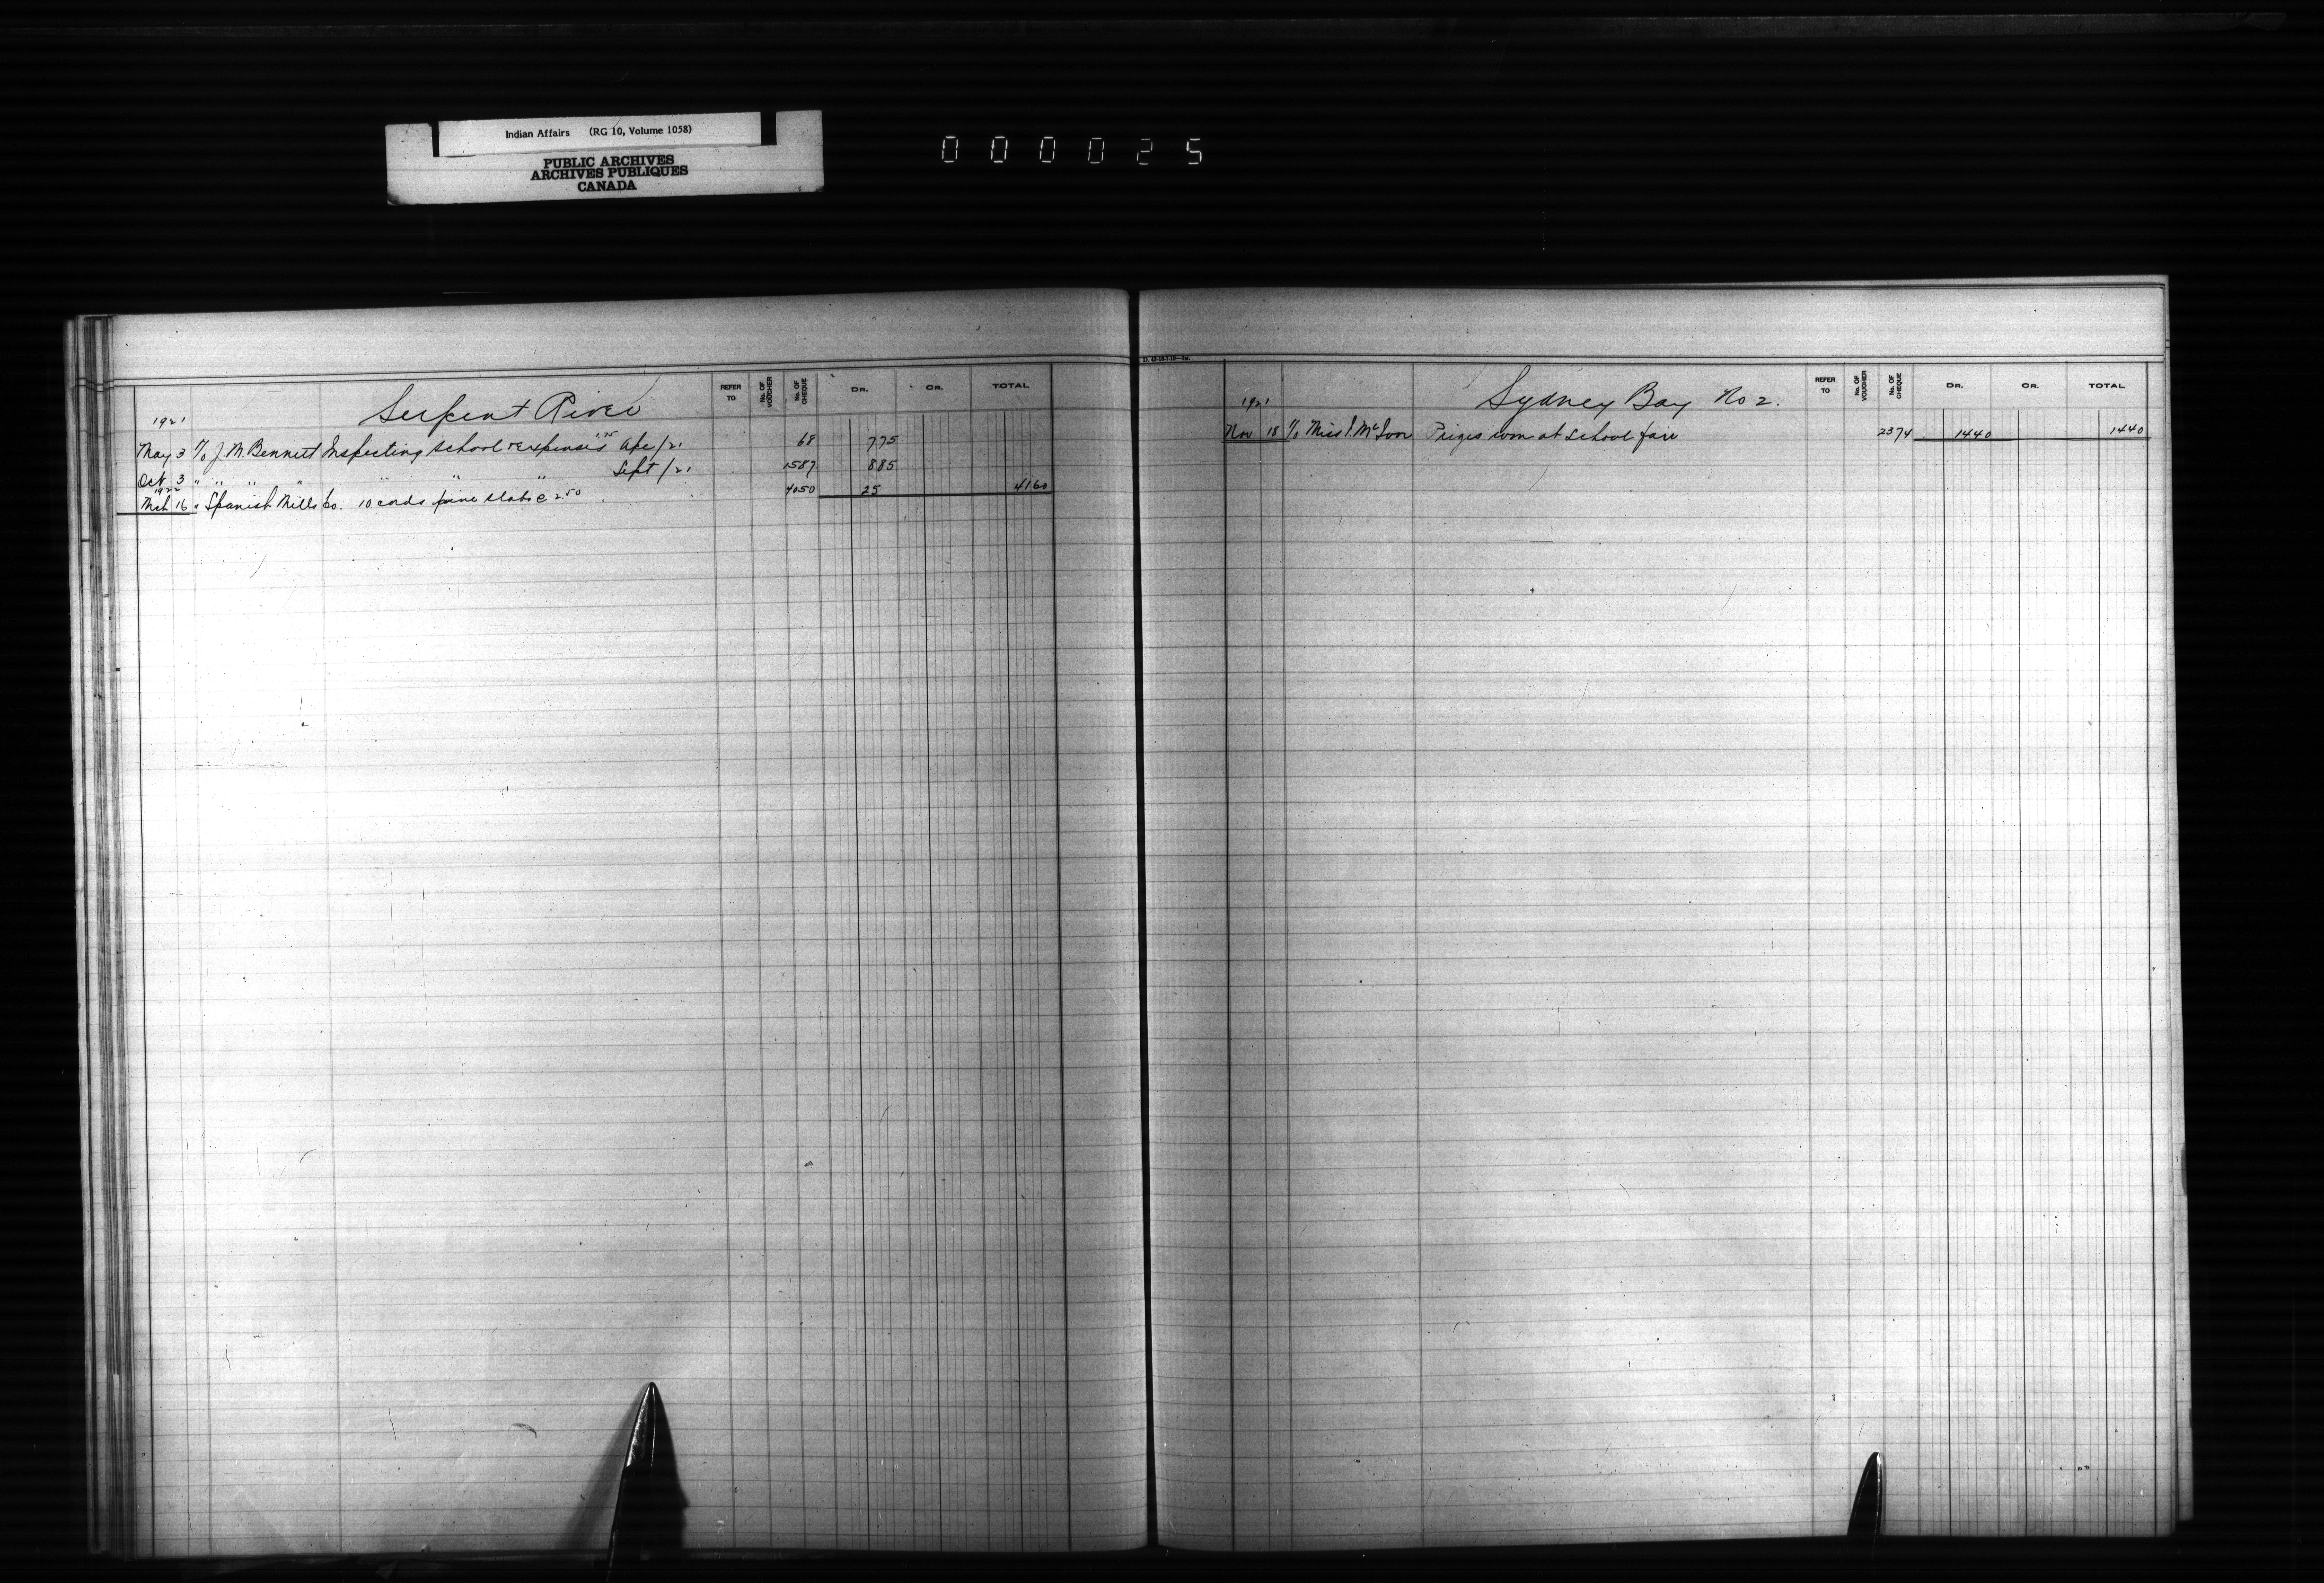 Indian Affairs (RG 10, Volume 1058)
PUBLIC ARCHIVES
ARCHIVES PUBLIQUES
CANADA
000025
Serpent River
REFER TO
No. OF VOUCHER
No. OF CHEQUE
DR.
CR.
TOTAL
1921
May 3 J. M. Bennett Inspecting school expenses 1.75 Apr/21 68 7.75
Oct 3 " " " " " " " Sept/21 1587 8 85
1922
Mch 16 " Spanish Mills Co. 10 cords pine slabs @ 2.50 4050 25 41 60
Sydney Bay No 2.
REFER TO
No. OF VOUCHER
No. OF CHEQUE
DR.
CR.
TOTAL
1921
Nov 18 Miss I. Prizes won at school fair 2374 14 40 14 40